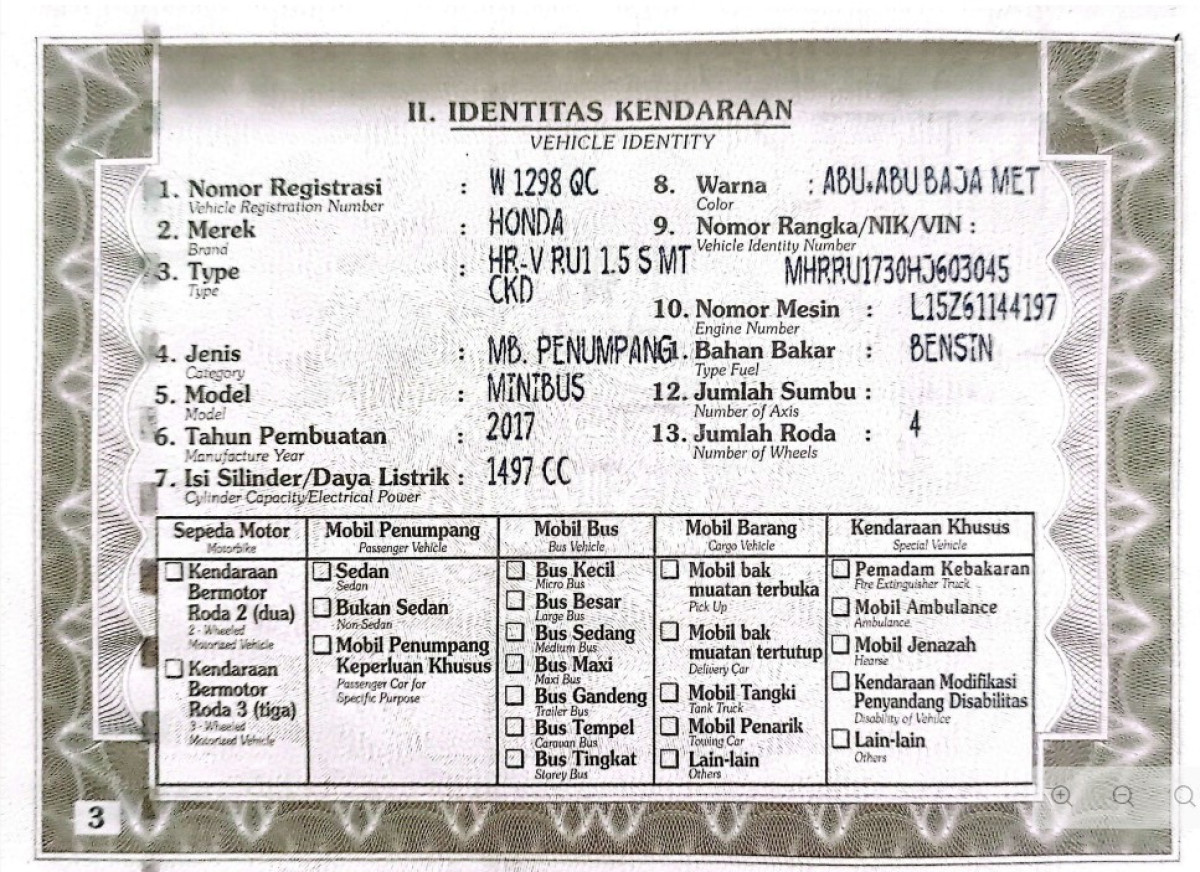 II. IDENTITAS KENDARAAN
VEHICLE IDENTITY
1. Nomor Registrasi : W 1298 QC
Vehicle Registration Number
2. Merek : HONDA
Brand
3. Type : HR-V RU1 1.5 S MT
Type
CKD
4. Jenis : MB. PENUMPANG
Category
5. Model : MINIBUS
Model
6. Tahun Pembuatan : 2017
Manufacture Year
7. Isi Silinder/Daya Listrik : 1497 CC
Cylinder Capacity/Electrical Power
8. Warna : ABU+ABU BAJA MET
Color
9. Nomor Rangka/NIK/VIN :
Vehicle Identity Number
MHRRU1730HJ603045
10. Nomor Mesin : L15Z61144197
Engine Number
11. Bahan Bakar : BENSIN
Type Fuel
12. Jumlah Sumbu :
Number of Axis
13. Jumlah Roda : 4
Number of Wheels
Sepeda Motor
Motorbike
Kendaraan
Bermotor
Roda 2 (dua)
2 - Wheeled
Motorized Vehicle
Kendaraan
Bermotor
Roda 3 (tiga)
3 - Wheeled
Motorized Vehicle
Mobil Penumpang
Passenger Vehicle
Sedan
Sedan
Bukan Sedan
Non-Sedan
Mobil Penumpang
Keperluan Khusus
Passenger Car for
Specific Purpose
Mobil Bus
Bus Vehicle
Bus Kecil
Micro Bus
Bus Besar
Large Bus
Bus Sedang
Medium Bus
Bus Maxi
Maxi Bus
Bus Gandeng
Trailer Bus
Bus Tempel
Caravan Bus
Bus Tingkat
Storey Bus
Mobil Barang
Cargo Vehicle
Mobil bak
muatan terbuka
Pick Up
Mobil bak
muatan tertutup
Delivery Car
Mobil Tangki
Tank Truck
Mobil Penarik
Towing Car
Lain-lain
Others
Kendaraan Khusus
Special Vehicle
Pemadam Kebakaran
Fire Extinguisher Truck
Mobil Ambulance
Ambulance
Mobil Jenazah
Hearse
Kendaraan Modifikasi
Penyandang Disabilitas
Disability of Vehilce
Lain-lain
Others
3